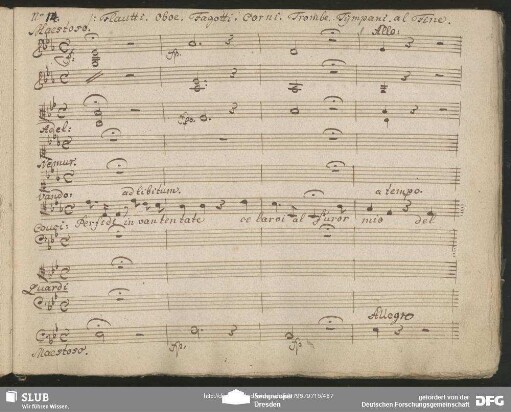 No 14. Flautti. Oboe. Fagotti. Corni. Trombe. Tympani. al Fine.
Maestoso. Allo:
fp.
Adel:
Nemur.
Vando: ad libitum. a tempo.
Perfidi in van tentate ce larvi al furor mio del
Couci:
Quardi
Allegro
Maestoso. fp. fp.
SLUB
Wir führen Wissen.
Dresden
gefördert von der
Deutschen Forschungsgemeinschaft
DFG